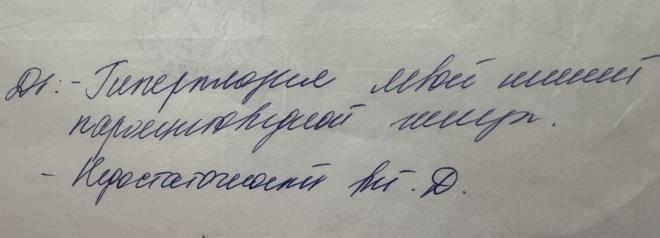 Ds: - Гиперплазия левой нижней
паращитовидной железы.
- Недостаточность вит. Д.